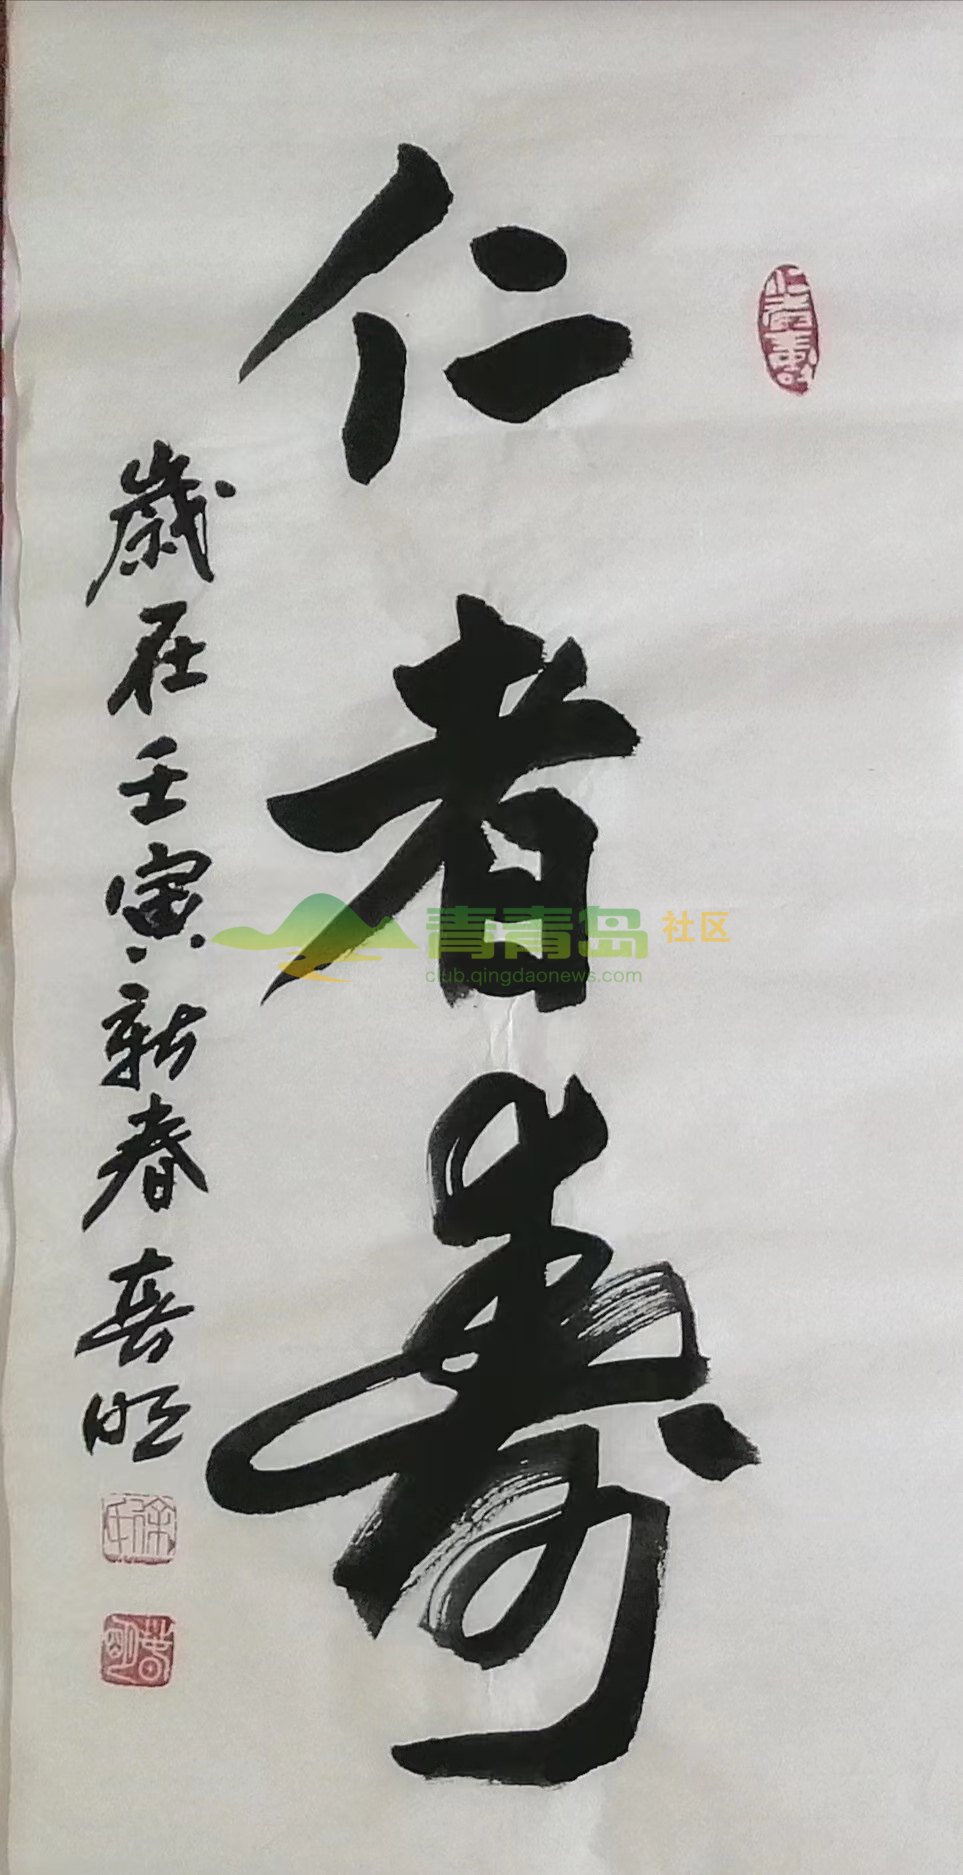 仁者壽
歲在壬寅新春喜旺
仁者壽
徐氏
青青岛社区
club.qingdaonews.com